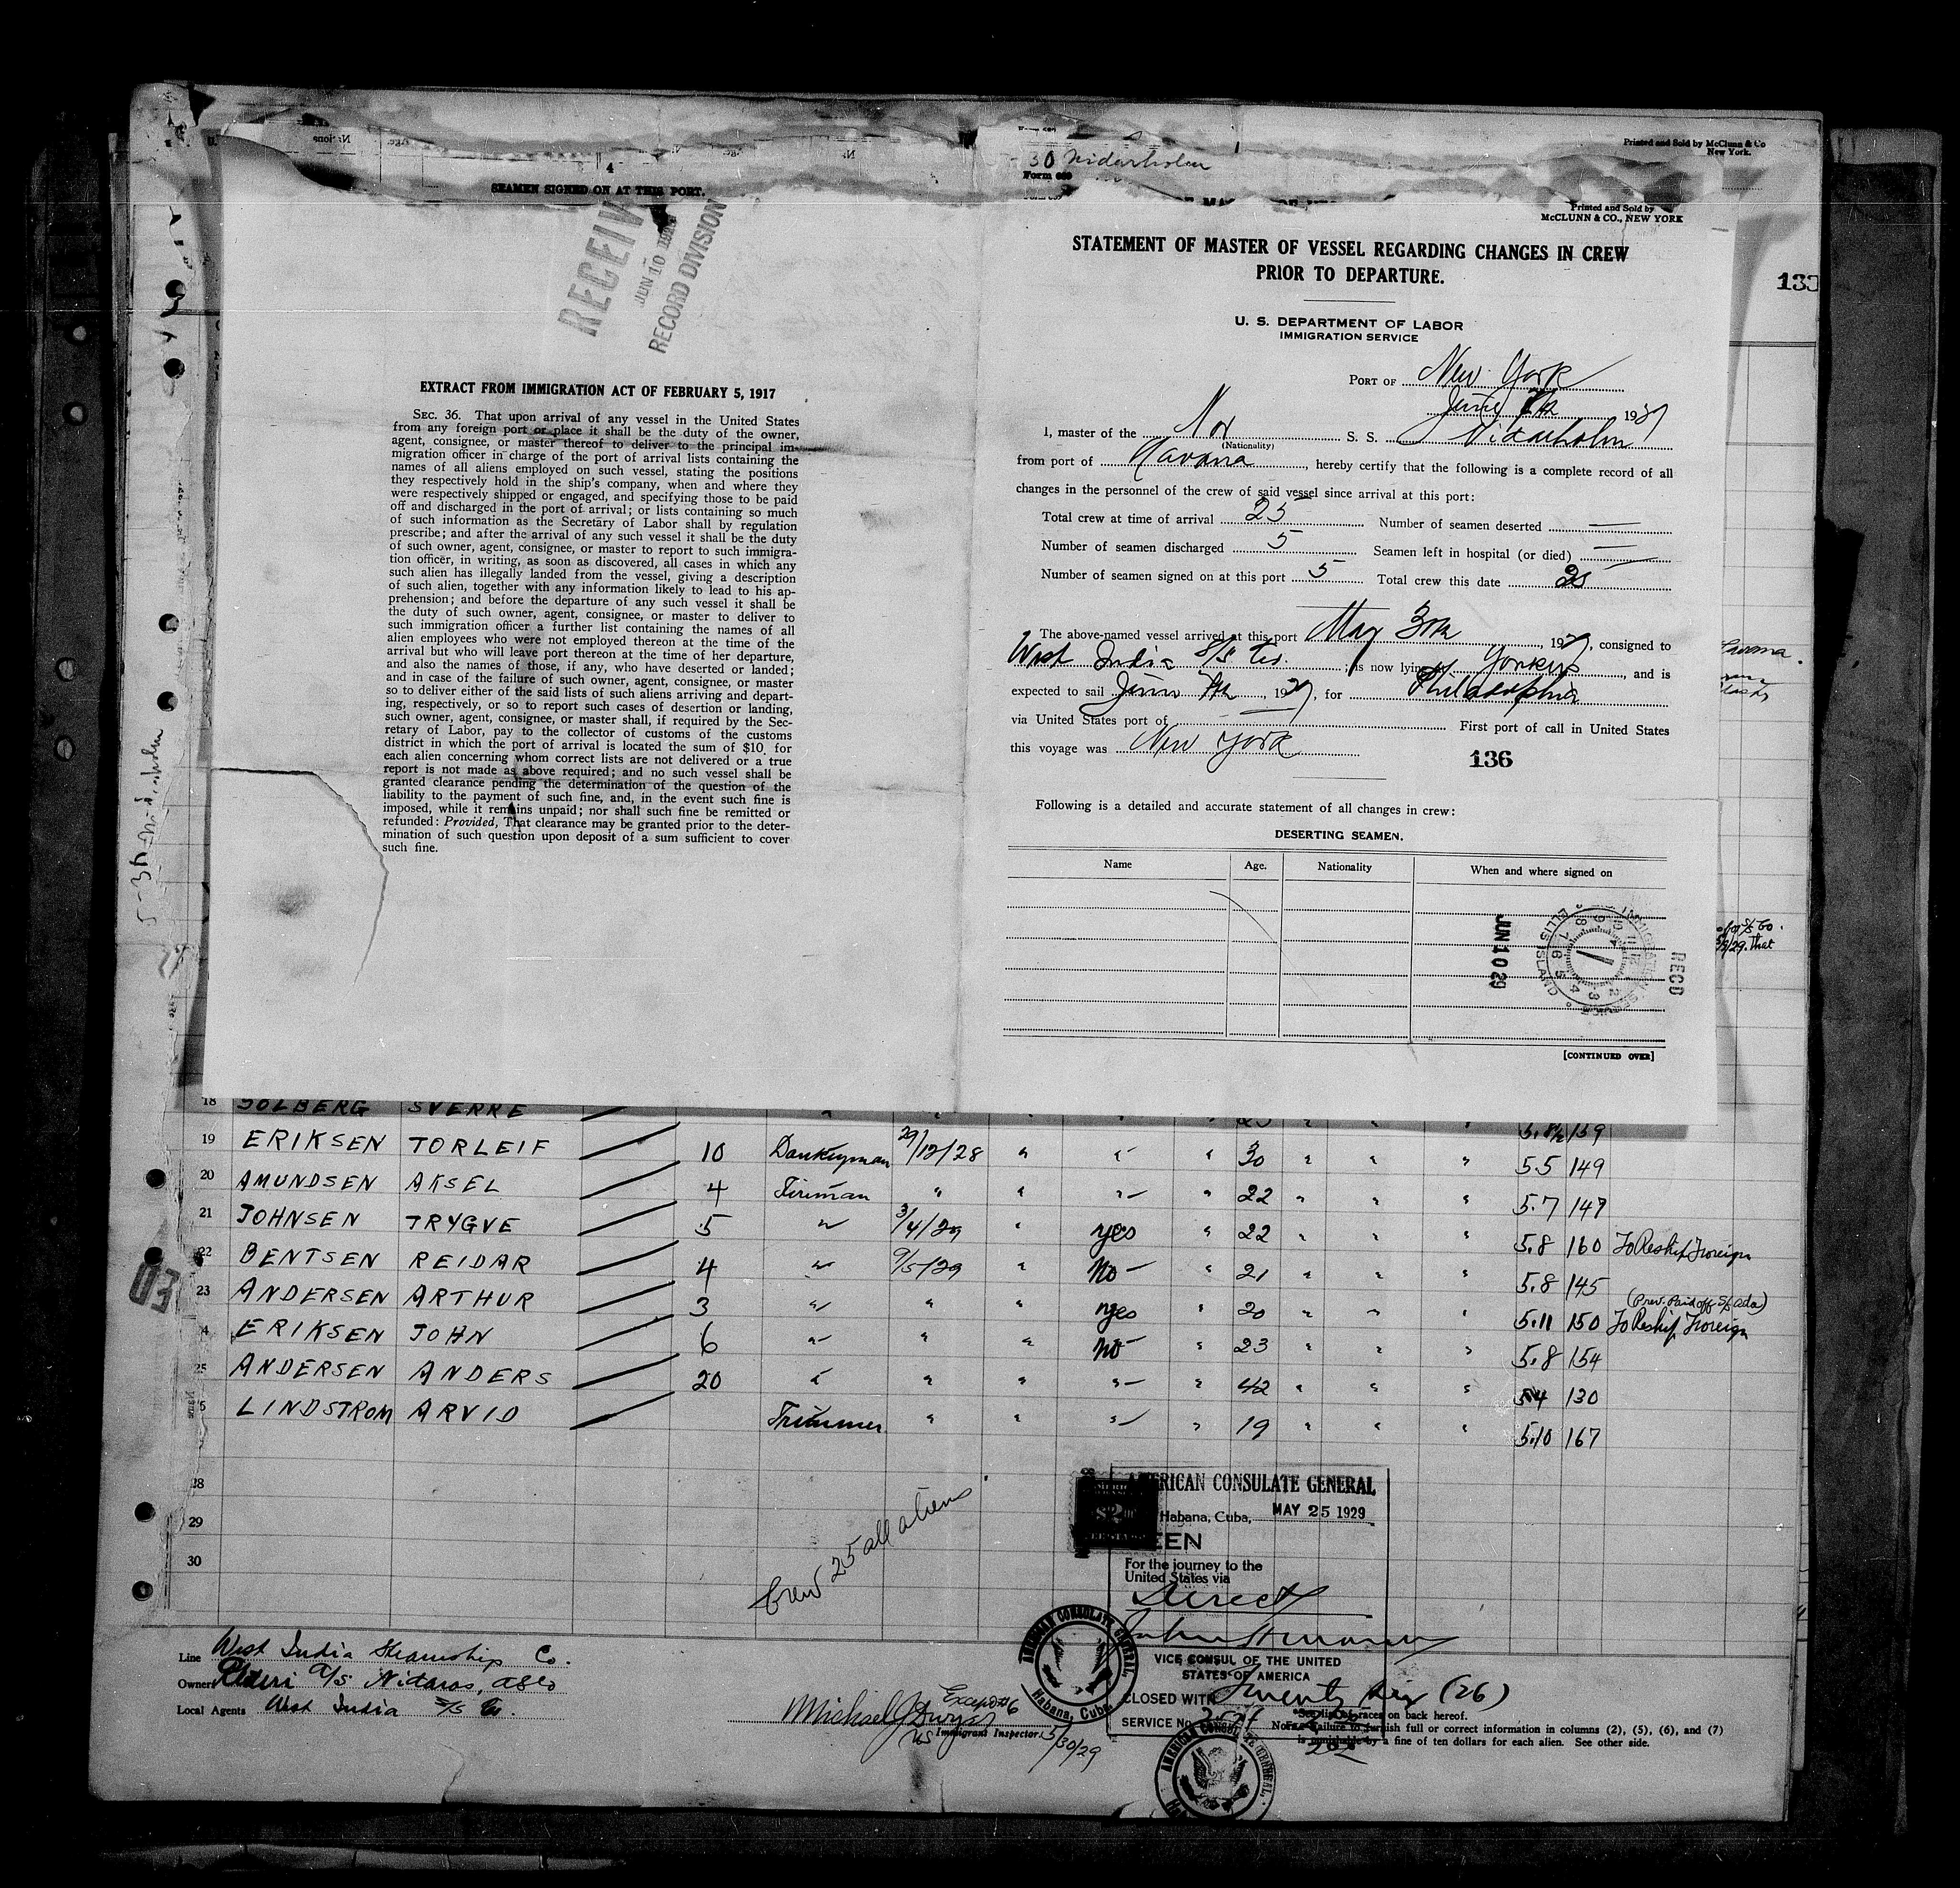 Printed and Sold by McClunn & Co
New York.
30 Nidarholm
Form 689
4
SEAMEN SIGNED ON AT THIS PORT.
RECEIV
JUN 10 19
RECORD DIVISION
EXTRACT FROM IMMIGRATION ACT OF FEBRUARY 5, 1917
SEC. 36. That upon arrival of any vessel in the United States
from any foreign port or place it shall be the duty of the owner,
agent, consignee, or master thereof to deliver to the principal im-
migration officer in charge of the port of arrival lists containing the
names of all aliens employed on such vessel, stating the positions
they respectively hold in the ship's company, when and where they
were respectively shipped or engaged, and specifying those to be paid
off and discharged in the port of arrival; or lists containing so much
of such information as the Secretary of Labor shall by regulation
prescribe; and after the arrival of any such vessel it shall be the duty
of such owner, agent, consignee, or master to report to such immigra-
tion officer, in writing, as soon as discovered, all cases in which any
such alien has illegally landed from the vessel, giving a description
of such alien, together with any information likely to lead to his ap-
prehension; and before the departure of any such vessel it shall be
the duty of such owner, agent, consignee, or master to deliver to
such immigration officer a further list containing the names of all
alien employees who were not employed thereon at the time of the
arrival but who will leave port thereon at the time of her departure,
and also the names of those, if any, who have deserted or landed;
and in case of the failure of such owner, agent, consignee, or master
so to deliver either of the said lists of such aliens arriving and depart-
ing, respectively, or so to report such cases of desertion or landing,
such owner, agent, consignee, or master shall, if required by the Sec-
retary of Labor, pay to the collector of customs of the customs
district in which the port of arrival is located the sum of $10 for
each alien concerning whom correct lists are not delivered or a true
report is not made as above required; and no such vessel shall be
granted clearance pending the determination of the question of the
liability to the payment of such fine, and, in the event such fine is
imposed, while it remains unpaid; nor shall such fine be remitted or
refunded: Provided, That clearance may be granted prior to the deter-
mination of such question upon deposit of a sum sufficient to cover
such fine.
Printed and Sold by
McCLUNN & CO., NEW YORK
STATEMENT OF MASTER OF VESSEL REGARDING CHANGES IN CREW
PRIOR TO DEPARTURE.
133
U. S. DEPARTMENT OF LABOR
IMMIGRATION SERVICE
PORT OF New York
June 7th 1929
I, master of the Nor S. S. Nidarholm
(Nationality)
from port of Havana, hereby certify that the following is a complete record of all
changes in the personnel of the crew of said vessel since arrival at this port:
Total crew at time of arrival 25 Number of seamen deserted —
Number of seamen discharged 5 Seamen left in hospital (or died) —
Number of seamen signed on at this port 5 Total crew this date 25
The above-named vessel arrived at this port May 30th, 1929, consigned to
West India S/S Co. ; is now lying Yonkers, and is
expected to sail June 7th, 1929, for Philadelphia
via United States port of — First port of call in United States
this voyage was New York
136
Following is a detailed and accurate statement of all changes in crew:
DESERTING SEAMEN.
Name Age. Nationality When and where signed on
JUN 10 29
IMMIGRATION SERVICE ELLIS ISLAND
RECD
[CONTINUED OVER]
18 SOLBERG SVERRE 5.8½ 159
19 ERIKSEN TORLEIF 10 Donkeyman 29/12/28 " " " 30 " " " 5.5 149
20 AMUNDSEN AKSEL 4 Fireman " " " " 22 " " " 5.7 147
21 JOHNSEN TRYGVE 5 " 3/4/29 " yes " 22 " " " 5.8 160 To Reship Foreign
22 BENTSEN REIDAR 4 " 9/5/29 " No " 21 " " " 5.8 145
23 ANDERSEN ARTHUR 3 " " " yes " 20 " " " 5.11 150 (Prev. Paid off S/S Ada) To Reship Foreign
4 ERIKSEN JOHN 6 " " " no " 23 " " " 5.8 154
25 ANDERSEN ANDERS 20 " " " " " 42 " " " 5.4 130
LINDSTROM ARVID Trimmer " " " " 19 " " " 5.10 167
28
29
30
Crew 25 all aliens
AMERICAN CONSULATE GENERAL
Habana, Cuba, MAY 25 1929
EEN
For the journey to the
United States via
Direct
VICE CONSUL OF THE UNITED
STATES OF AMERICA
CLOSED WITH Twenty six (26)
SERVICE No.
AMERICAN CONSULATE GENERAL Habana, Cuba.
Line West India Steamship Co.
Owner A/S Nidaros, Oslo
Local Agents West India S/S Co.
Michael J Dwyer Except #6
US Immigrant Inspector. 5/30/29
*See list of races on back hereof.
Note.—Failure to furnish full or correct information in columns (2), (5), (6), and (7)
is punishable by a fine of ten dollars for each alien. See other side.
AMERICAN CONSULATE GENERAL